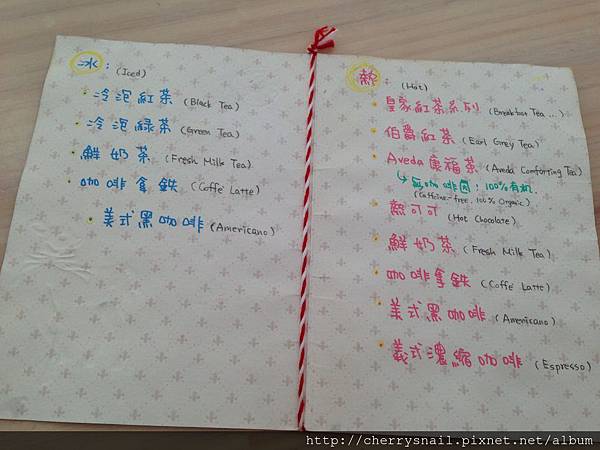 冰：(Iced)
冷泡紅茶 (Black Tea)
冷泡綠茶 (Green Tea)
鮮奶茶 (Fresh Milk Tea)
咖啡拿鐵 (Coffe Latte)
美式黑咖啡 (Americano)
熱：(Hot)
皇家紅茶系列 (Breakfast Tea ...)
伯爵紅茶 (Earl Grey Tea)
Aveda 康福茶 (Aveda Comforting Tea)
無咖啡因；100%有机.
(Caffeine-free, 100% Organic)
熱可可 (Hot Chocolate)
鮮奶茶 (Fresh Milk Tea)
咖啡拿鐵 (Coffe Latte)
美式黑咖啡 (Americano)
義式濃縮咖啡 (Espresso)
http://cherrysnail.pixnet.net/album